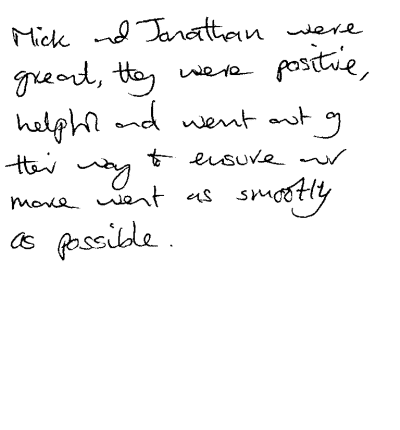 Mick and Jonathan were
great, they were positive,
helpful and went out of
their way to ensure our
move went as smoothly
as possible.